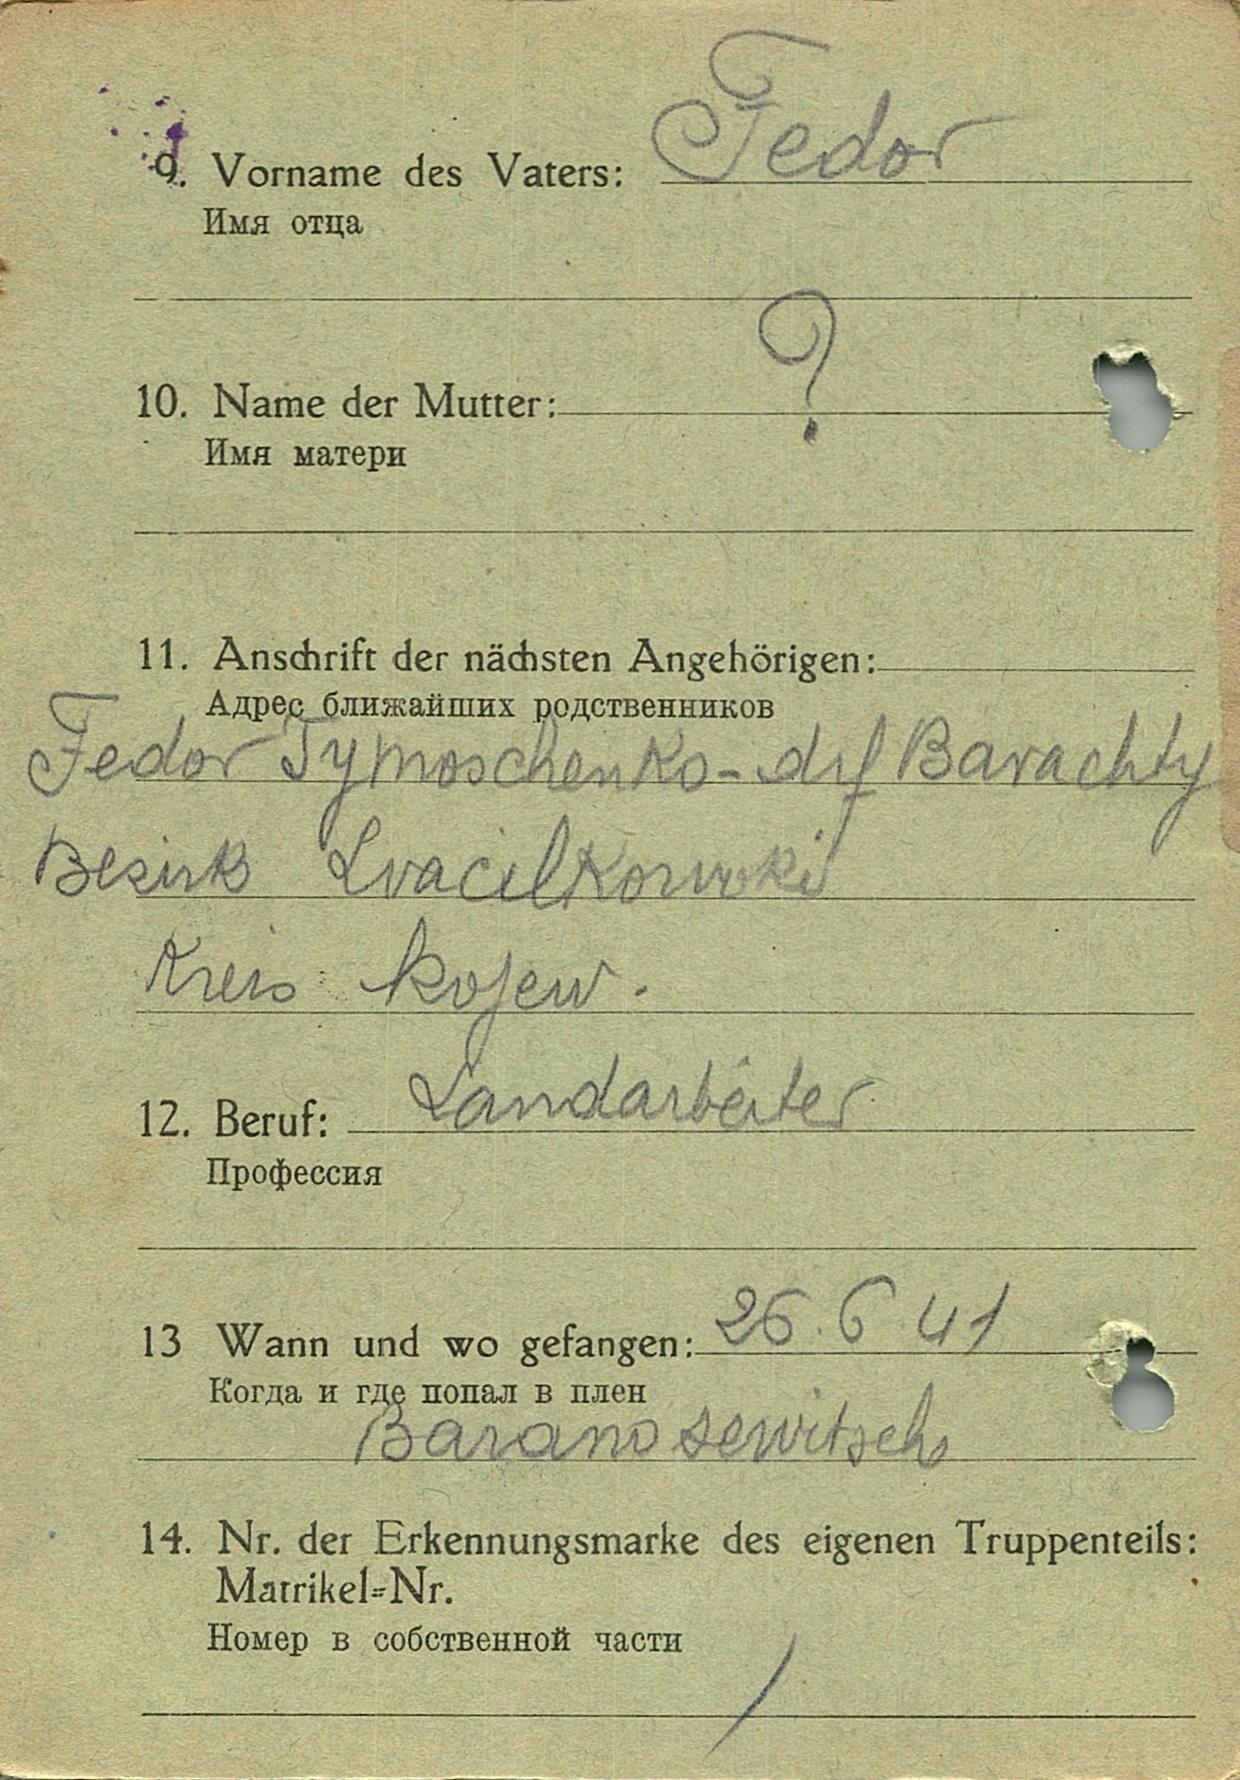 9. Vorname des Vaters: Fedor
Имя отца
?
10. Name der Mutter:
Имя матери
11. Anschrift der nächsten Angehörigen:
Адрес ближайших родственников
Fedor Tymoschenko - drf Barachty
Besirk
Kreis Kojew.
12. Beruf: Landarbeiter
Профессия
13 Wann und wo gefangen: 26. 6 41
Когда и где попал в плен
Baranosewitsch
14. Nr. der Erkennungsmarke des eigenen Truppenteils:
Matrikel=Nr.
Номер в собственной части
/